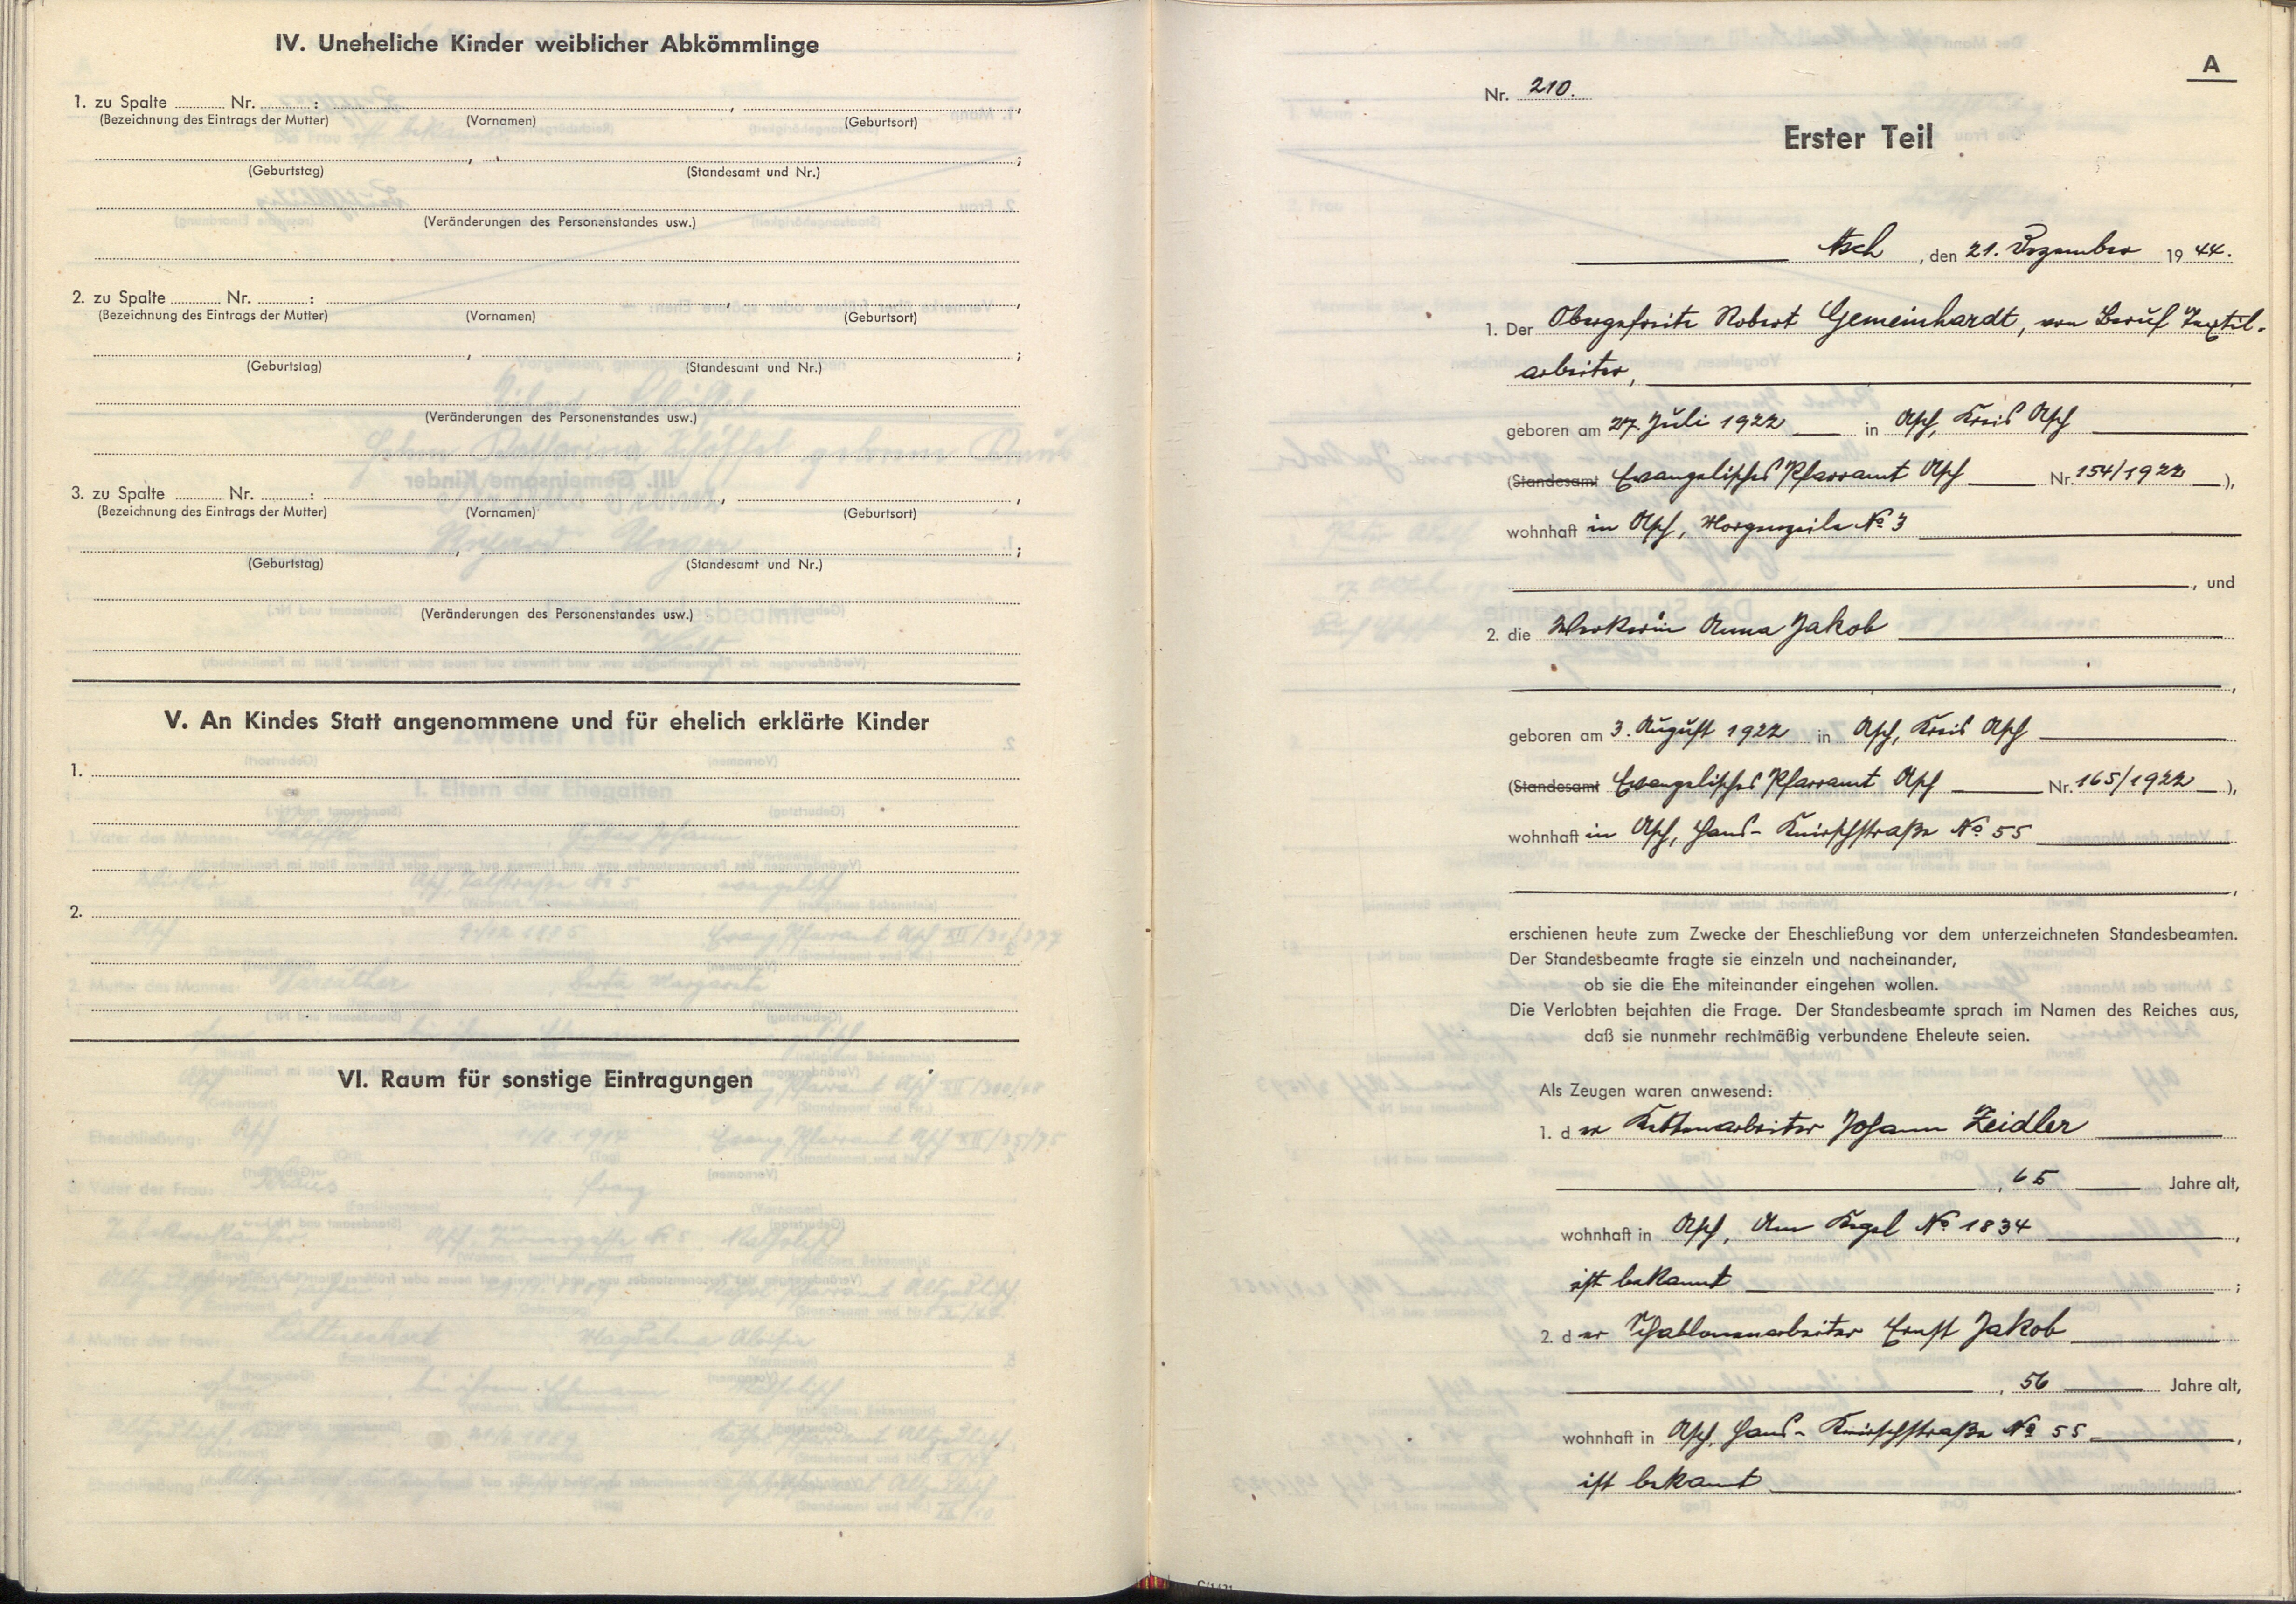 IV. Uneheliche Kinder weiblicher Abkömmlinge
1. zu Spalte ........ Nr. ........ :
(Bezeichnung des Eintrags der Mutter) (Vornamen) (Geburtsort)
(Geburtstag) (Standesamt und Nr.)
(Veränderungen des Personenstandes usw.)
2. zu Spalte ........ Nr. ........ :
(Bezeichnung des Eintrags der Mutter) (Vornamen) (Geburtsort)
(Geburtstag) (Standesamt und Nr.)
(Veränderungen des Personenstandes usw.)
3. zu Spalte ........ Nr. ........ :
(Bezeichnung des Eintrags der Mutter) (Vornamen) (Geburtsort)
(Geburtstag) (Standesamt und Nr.)
(Veränderungen des Personenstandes usw.)
V. An Kindes Statt angenommene und für ehelich erklärte Kinder
1.
2.
VI. Raum für sonstige Eintragungen
A
Nr. 210.
Erster Teil
Asch, den 21. Dezember 1944.
1. Der Obergefreite Robert Gemeinhardt, von Beruf Textil-
arbeiter,
geboren am 27. Juli 1922 in Asch, Kreis Asch
(Standesamt Evangelisches Pfarramt Asch Nr. 154/1922),
wohnhaft in Asch, Morgenzeile No 3
, und
2. die Wirkerin Anna Jakob
geboren am 3. August 1922 in Asch, Kreis Asch
(Standesamt Evangelisches Pfarramt Asch Nr. 165/1922),
wohnhaft in Asch, Hans-Knirschstraße No 55
erschienen heute zum Zwecke der Eheschließung vor dem unterzeichneten Standesbeamten.
Der Standesbeamte fragte sie einzeln und nacheinander,
ob sie die Ehe miteinander eingehen wollen.
Die Verlobten bejahten die Frage. Der Standesbeamte sprach im Namen des Reiches aus,
daß sie nunmehr rechtmäßig verbundene Eheleute seien.
Als Zeugen waren anwesend:
1. der Kettenarbeiter Johann Zeidler
, 65 Jahre alt,
wohnhaft in Asch, Am Kegel No 1834,
ist bekannt;
2. der Schablonenarbeiter Ernst Jakob
, 56 Jahre alt,
wohnhaft in Asch, Hans-Knirschstraße No 55,
ist bekannt